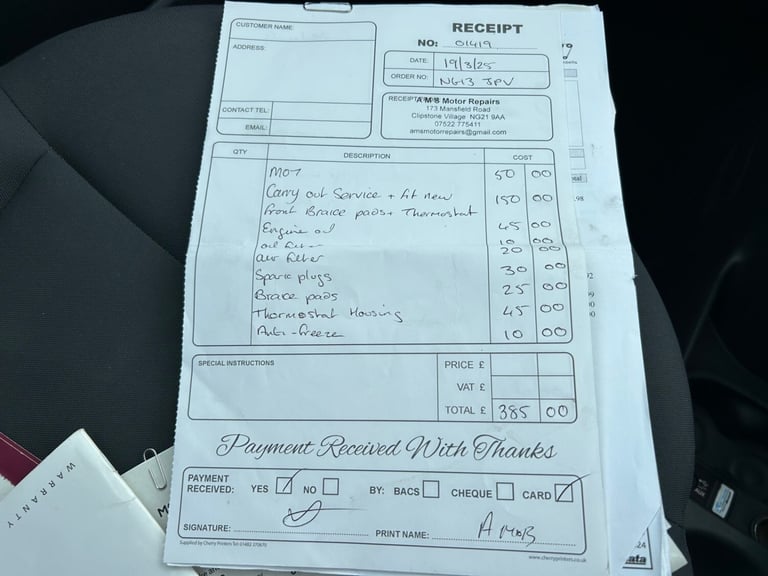 CUSTOMER NAME:
ADDRESS:
CONTACT TEL:
EMAIL:
RECEIPT
NO: 01419
DATE: 19/3/25
ORDER NO: NG13 JPV
RECEIPT
AMS Motor Repairs
173 Mansfield Road
Clipstone Village NG21 9AA
07522 775411
amsmotorrepairs@gmail.com
QTY DESCRIPTION COST
MOT 50 00
Carry out Service + fit new 150 00
front Brake pads + Thermostat
Engine oil 45 00
oil filter 10 00
air filter 20 00
Spark plugs 30 00
Brake pads 25 00
Thermostat Housing 45 00
Anti-freeze 10 00
SPECIAL INSTRUCTIONS
PRICE £
VAT £
TOTAL £ 385 00
Payment Received With Thanks
PAYMENT RECEIVED: YES NO BY: BACS CHEQUE CARD
SIGNATURE: PRINT NAME: A
Supplied by Cherry Printers Tel: 01482 270670
www.cherryprinters.co.uk
WARRANTY